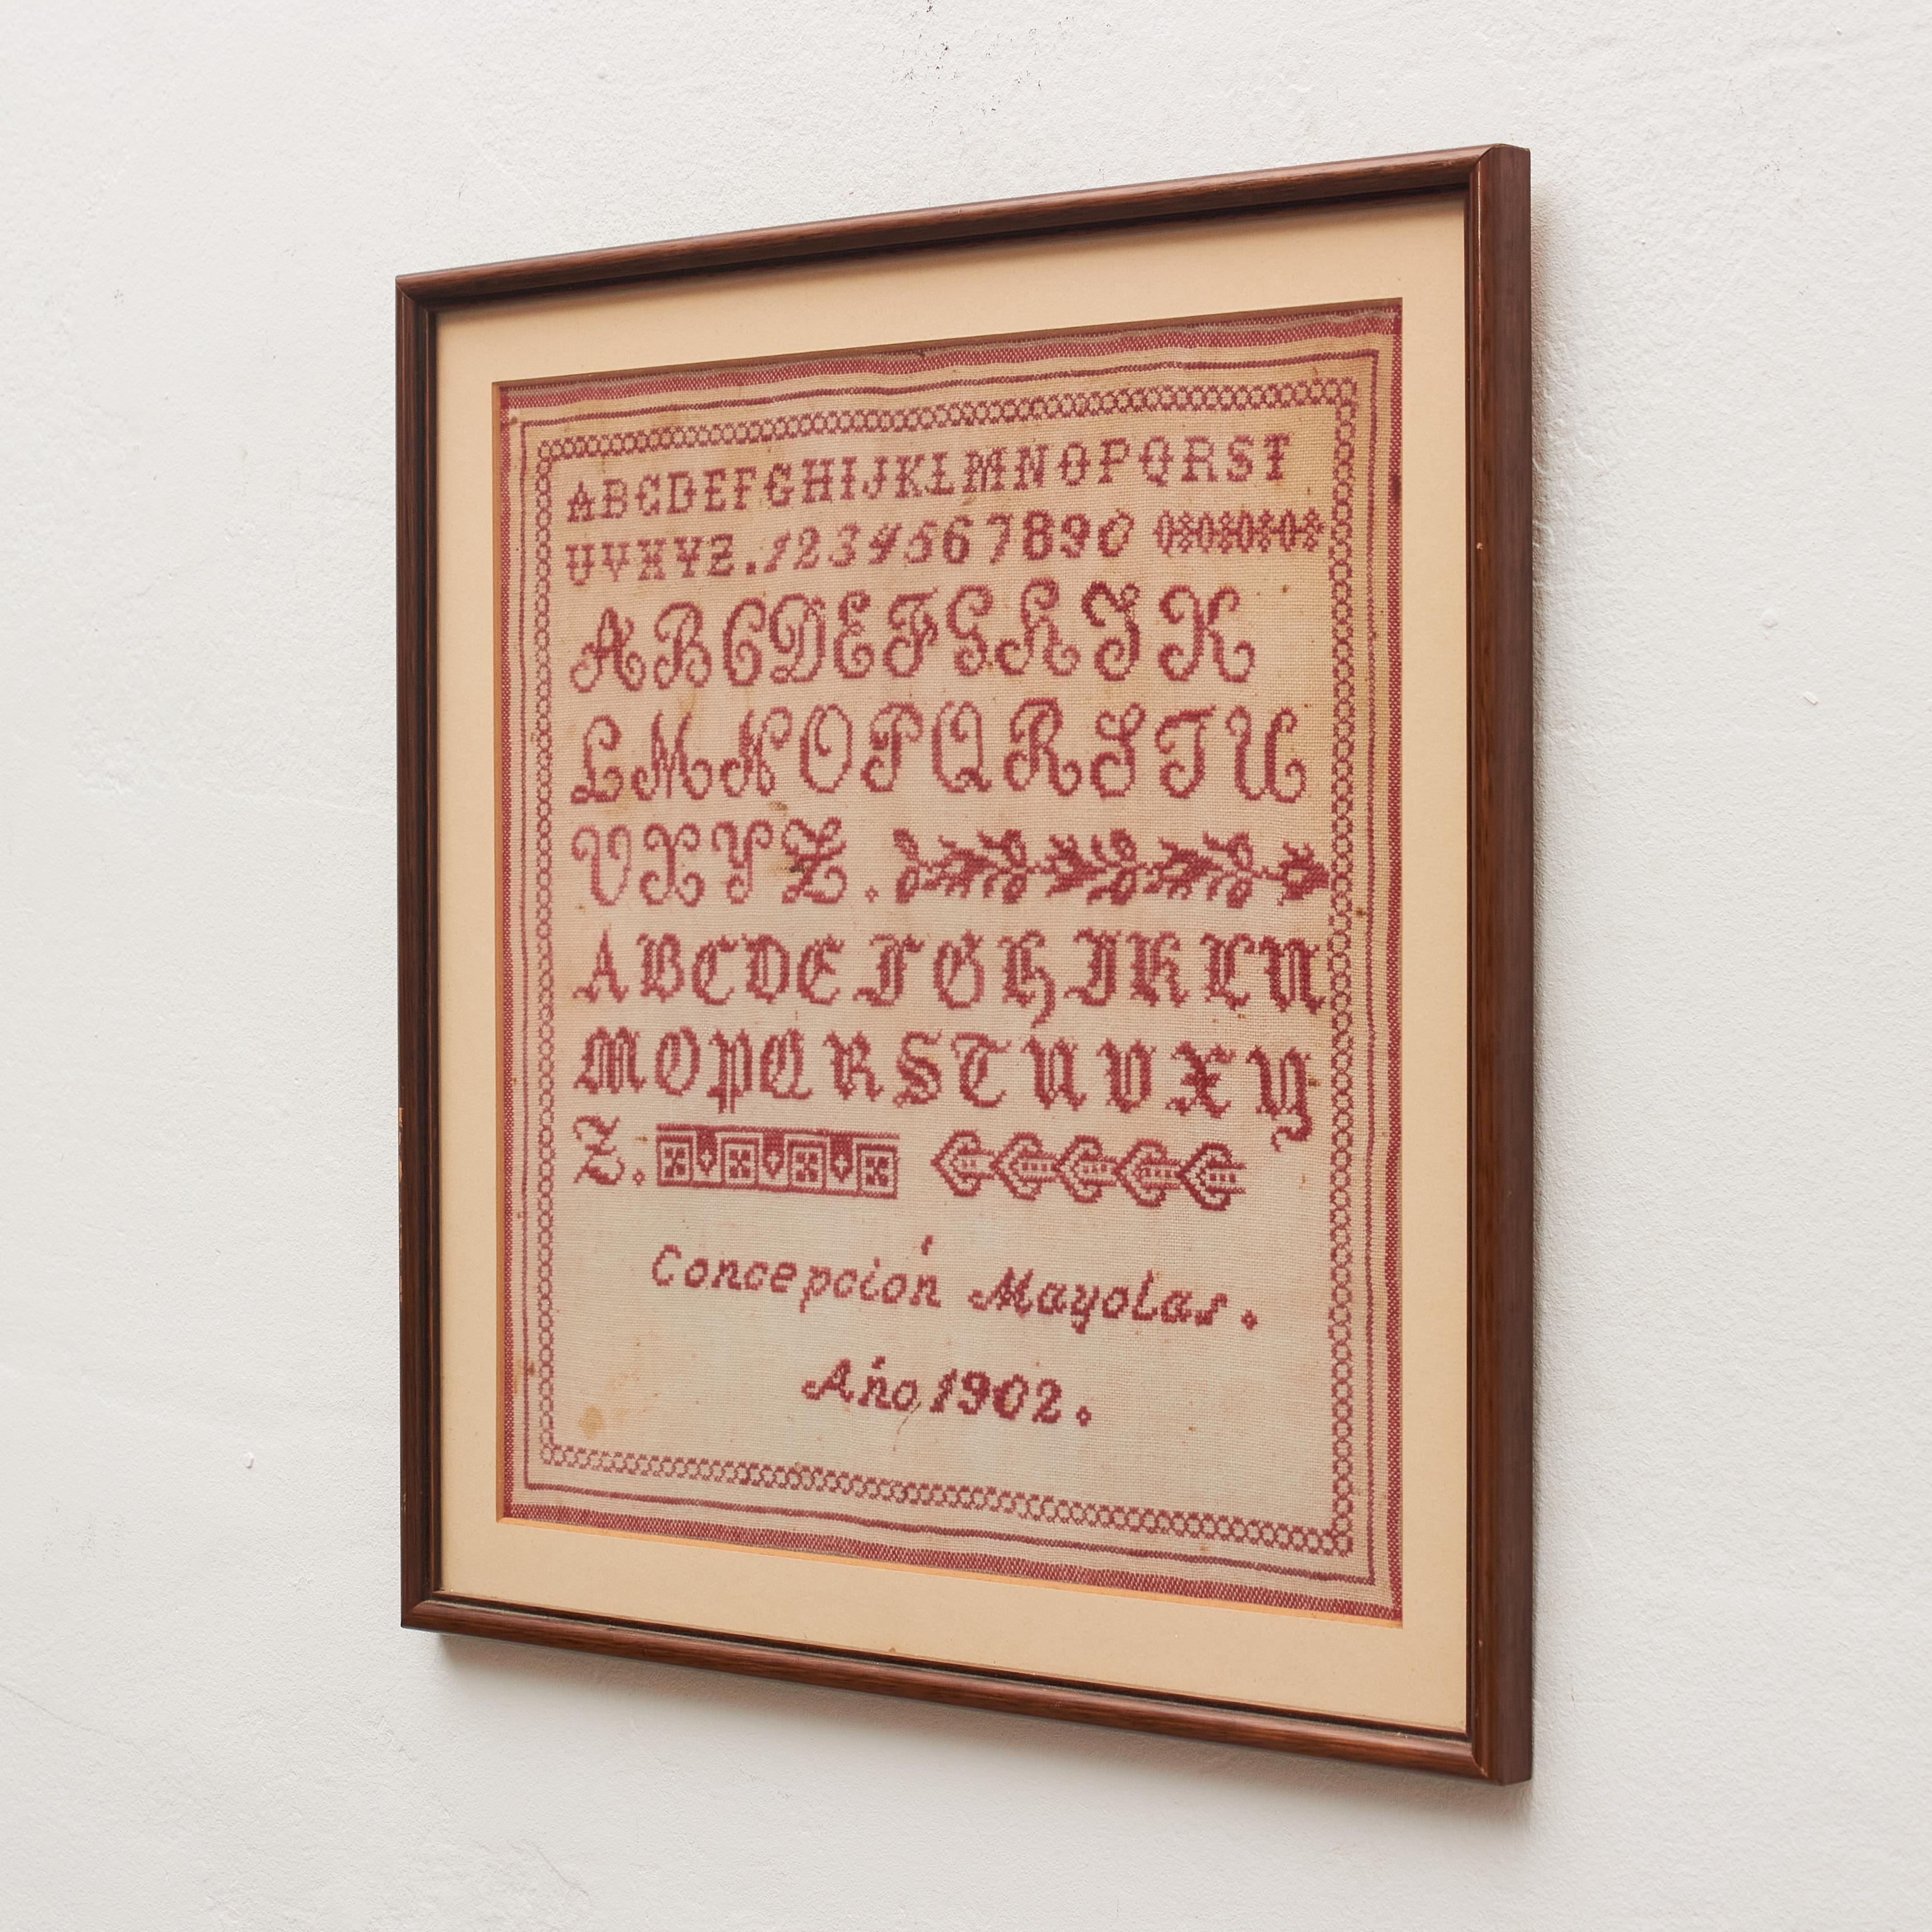 ABCDEFGHIJKLMNOPQRST
UVXYZ.1234567890
ABCDEFGHJK
LMNOPQRSTU
VXYZ.
ABCDEFGHIKLN
MOPQRSTUVXY
Z.
Concepción Mayolas.
Año 1902.